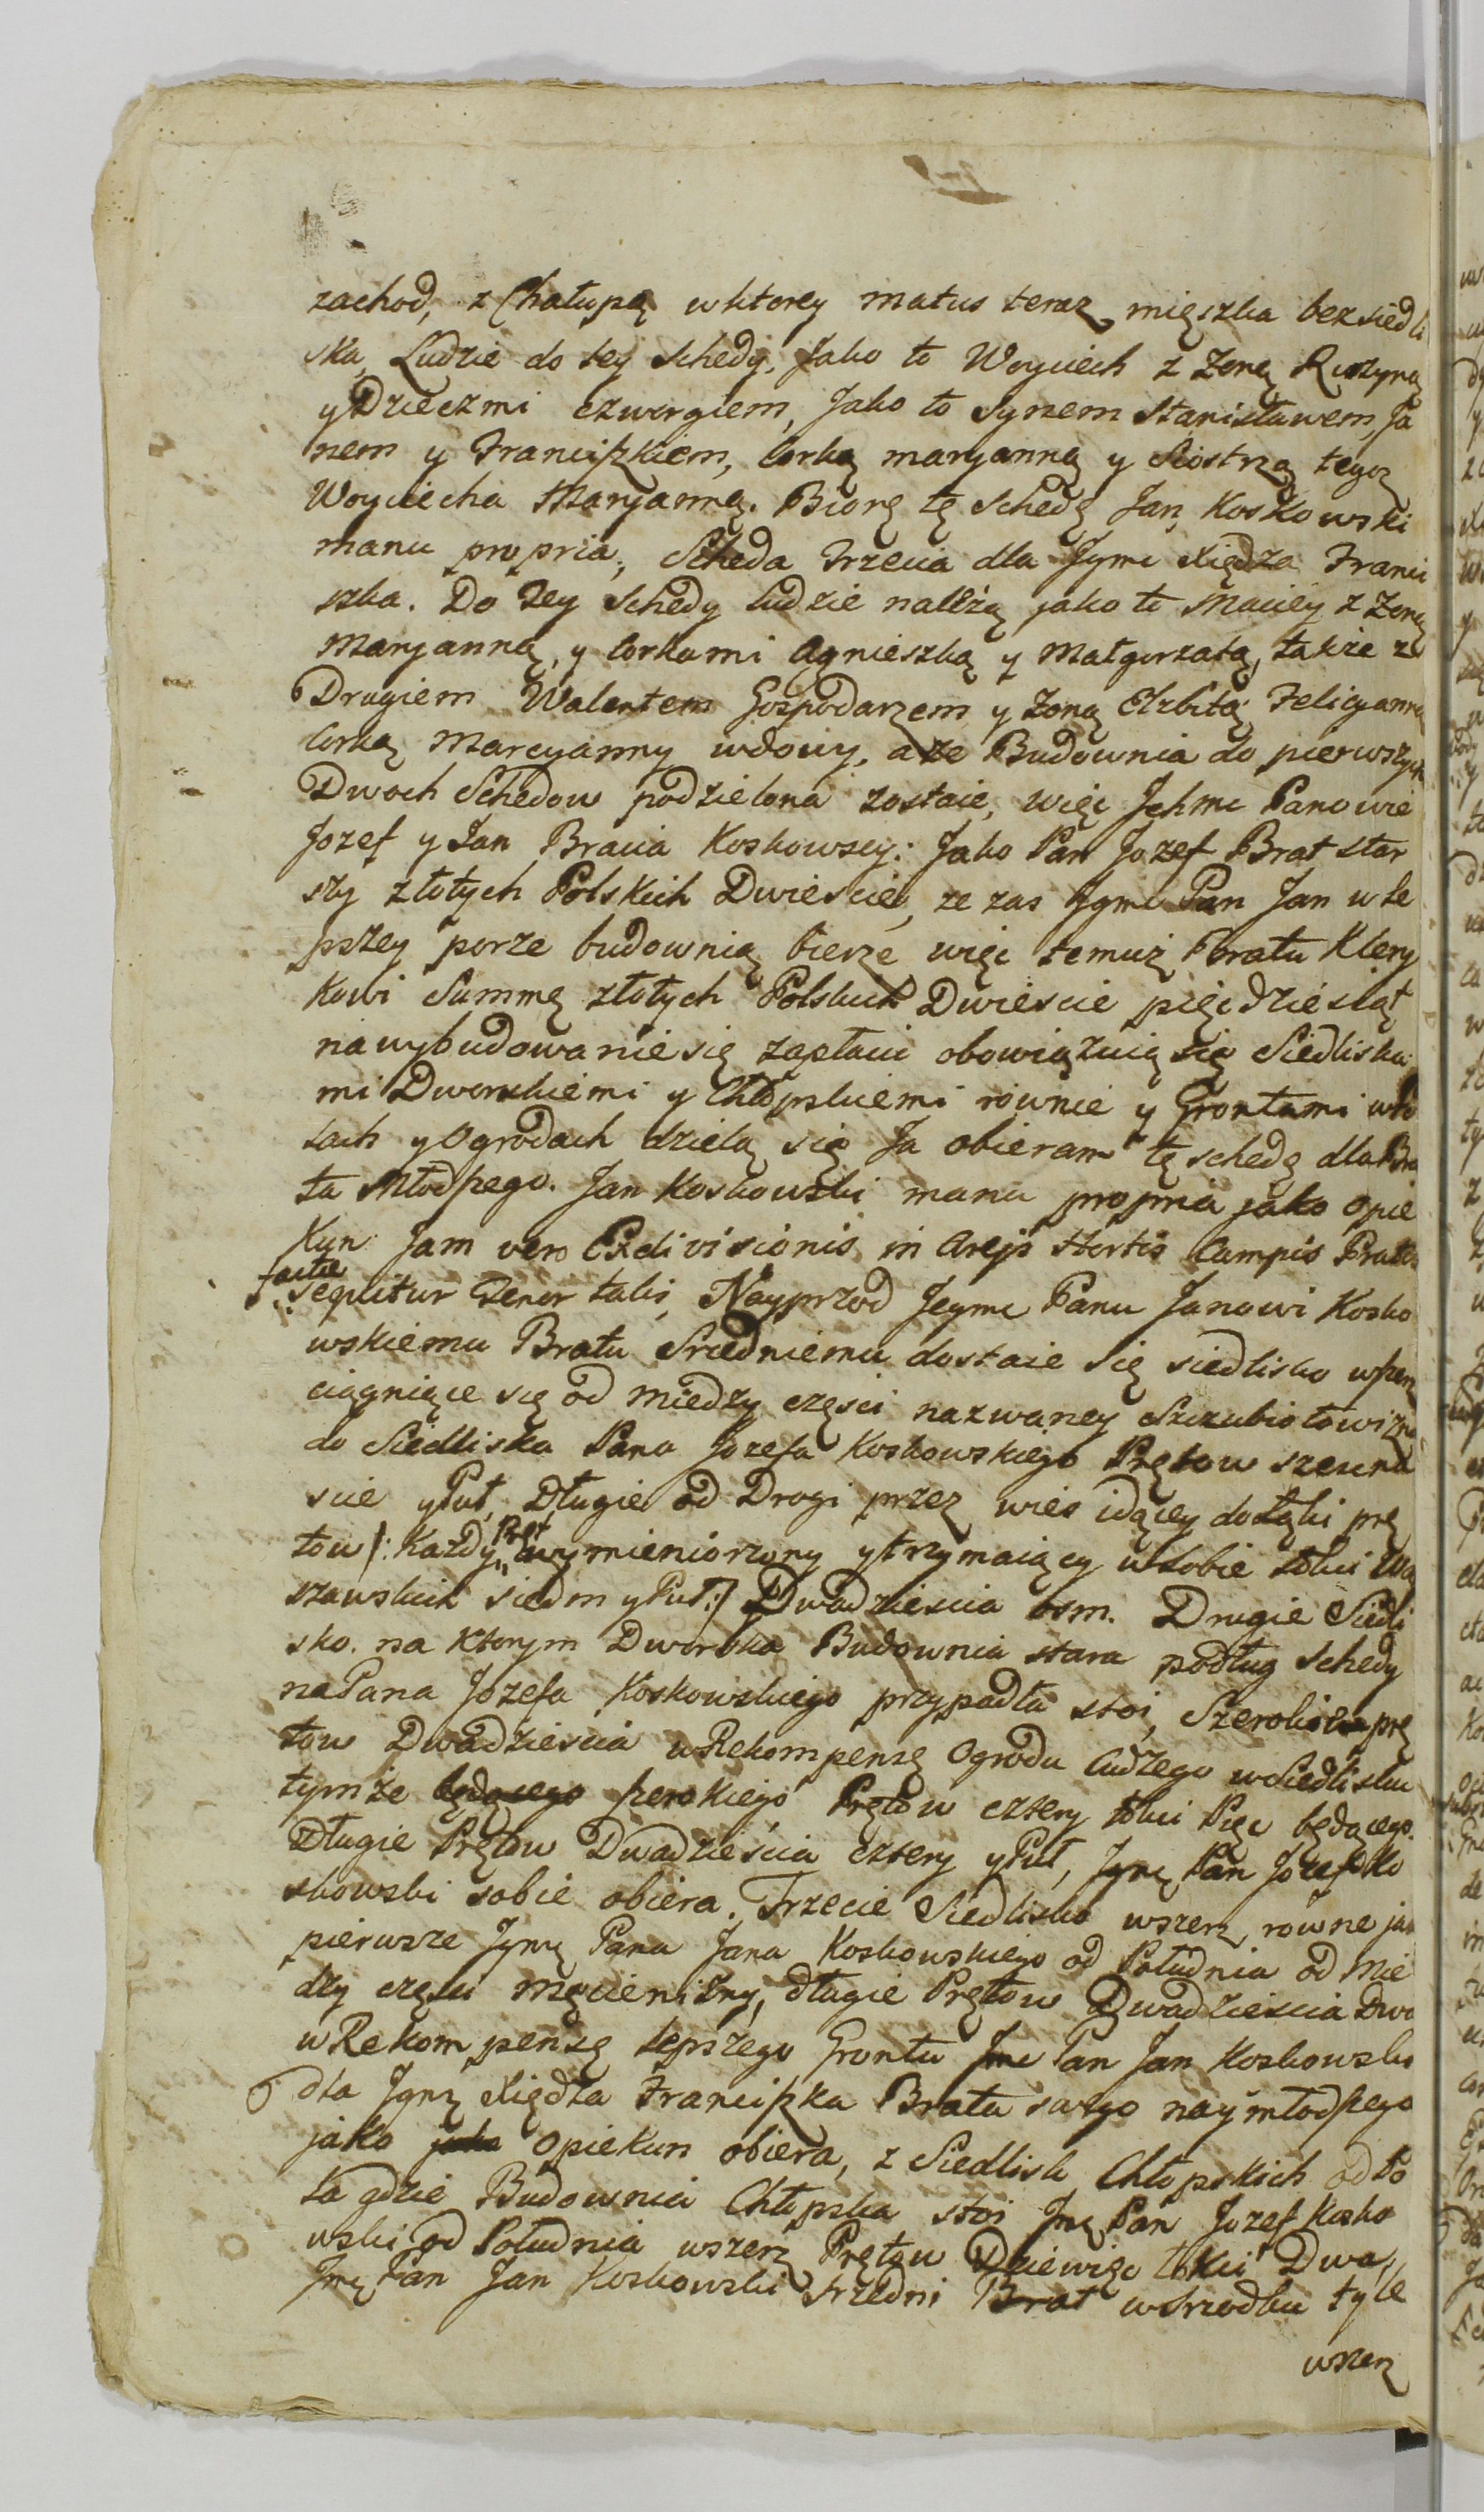 zachod, z Chałupą wktorey matus teraz mięszka bez siedli
ska, Ludzie do tey Schedy, Jako to Woyciech z Zoną Rużyną
y Dziećzmi czworgiem, Jako to Synem Stanisławem, Ja
nem y Franciszkiem, Corką maryanną y Siostrzą tegoz
Woyciecha Maryanną. Biorę tę Schedę Jan Koskowski
manu propria, Scheda Trzecia dla Jgmc Xiędza Franci
szka. Do Tey Schedy ludzie należą jako to Maciey z Zoną
Maryanną, y Corkami Agnieszką y Małgorzatą, także z
Drugiem Walentem Gospodarzem y Zoną Elzbitą, Felicyanną
Corką Marcyanny wdowy, a ze Budownia do pierwszych
Dwoch Schedow podzielona zostaie, więc Jchmc Panowie
Jozef y Jan Bracia Koskowscy: Jako Pan Jozef Brat star
szy złotych Polskich Dwieście, ze zas Jgmc Pan Jan w le
pszey porze budownią bierze więc temuż Bratu Klery
kowi Summę złotych Polskich Dwieście pięcdziesiąt
na wybudowanie się zapłacic obowiązuią się Siedliska
mi Dworskiemi y Chłopskiemi rownie y Grontami w Po
lach y Ogrodach dzielą się Ja obieram tę schedę dla Bra
ta Młodszego. Jan Koskowski manu propria jako Opie
kun Jam vero Exdivisionis in Arejs Hortis Campis Pratis
factae
sequitur Tenor talis, Nayprzod Jegmc Panu Janowi Kosko
wskiemu Bratu Sredniemu dostaie się siedlisko wszerz
ciągniące się od miedzy części nazwaney Szczubiołowizna
do Siedliska Pana Jozefa Koskowskiego Prętow szesna
scie y Puł, Długie od Drogi przez wies idącey do Łąki prę
Pręt
tow /: Każdy wymieniorzony y trzymaiący w sobie łokci Wa
szawskich siedm y Puł :/ Dwadzieścia osm. Drugie Siedli
sko. na ktorym Dworska Budownia stara podług Schedy
na Pana Jozefa Koskowskiego przypadła stoi, Szerokie prę
tow Dwadzieścia w Rekompensę Ogrodu Cudzego w Siedlisku
tymże będącego szerokiego Prętow cztery łokci Pięc będącego.
Długie Prętow Dwadzieścia cztery y Puł, Jgmc Pan Jozef Ko
skowski sobie obiera. Trzecie Siedlisko wszerz rowne jak
pierwsze Jgmc Pana Jana Koskowskiego od Południa od Mie
dzy części Męcienizny, długie Prętow Dwadzieścia Dwa
w Rekompensę lepszego Grontu Jmc Pan Jan Koskowski
dla Jgmc Xiędza Franciszka Brata swego naymłodszego
jako jako Opiekun obiera, z Siedlisk Chłopskich od ło
ta gdzie Budownia Chłopska stoi Jmc Pan Jozef Kosko
wski od Południa wszerz Prętow Dziewięc łokci Dwa,
Jmc Pan Jan Koskowski Srzedni Brat w Srzodku tyle
wszerz